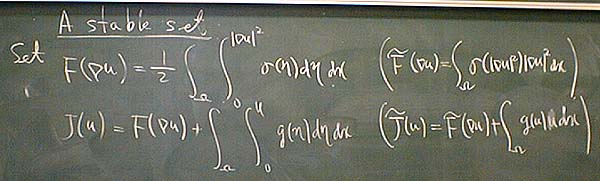 A stable set.
Set F(∇u) = 1/2 ∫_Ω ∫_0^{|∇u|²} σ(η)dη dx ( F̃(∇u) = ∫_Ω σ(|∇u|²)|∇u|² dx )
J(u) = F(∇u) + ∫_Ω ∫_0^u g(η)dη dx ( J̃(u) = F̃(∇u) + ∫_Ω g(u)u dx )